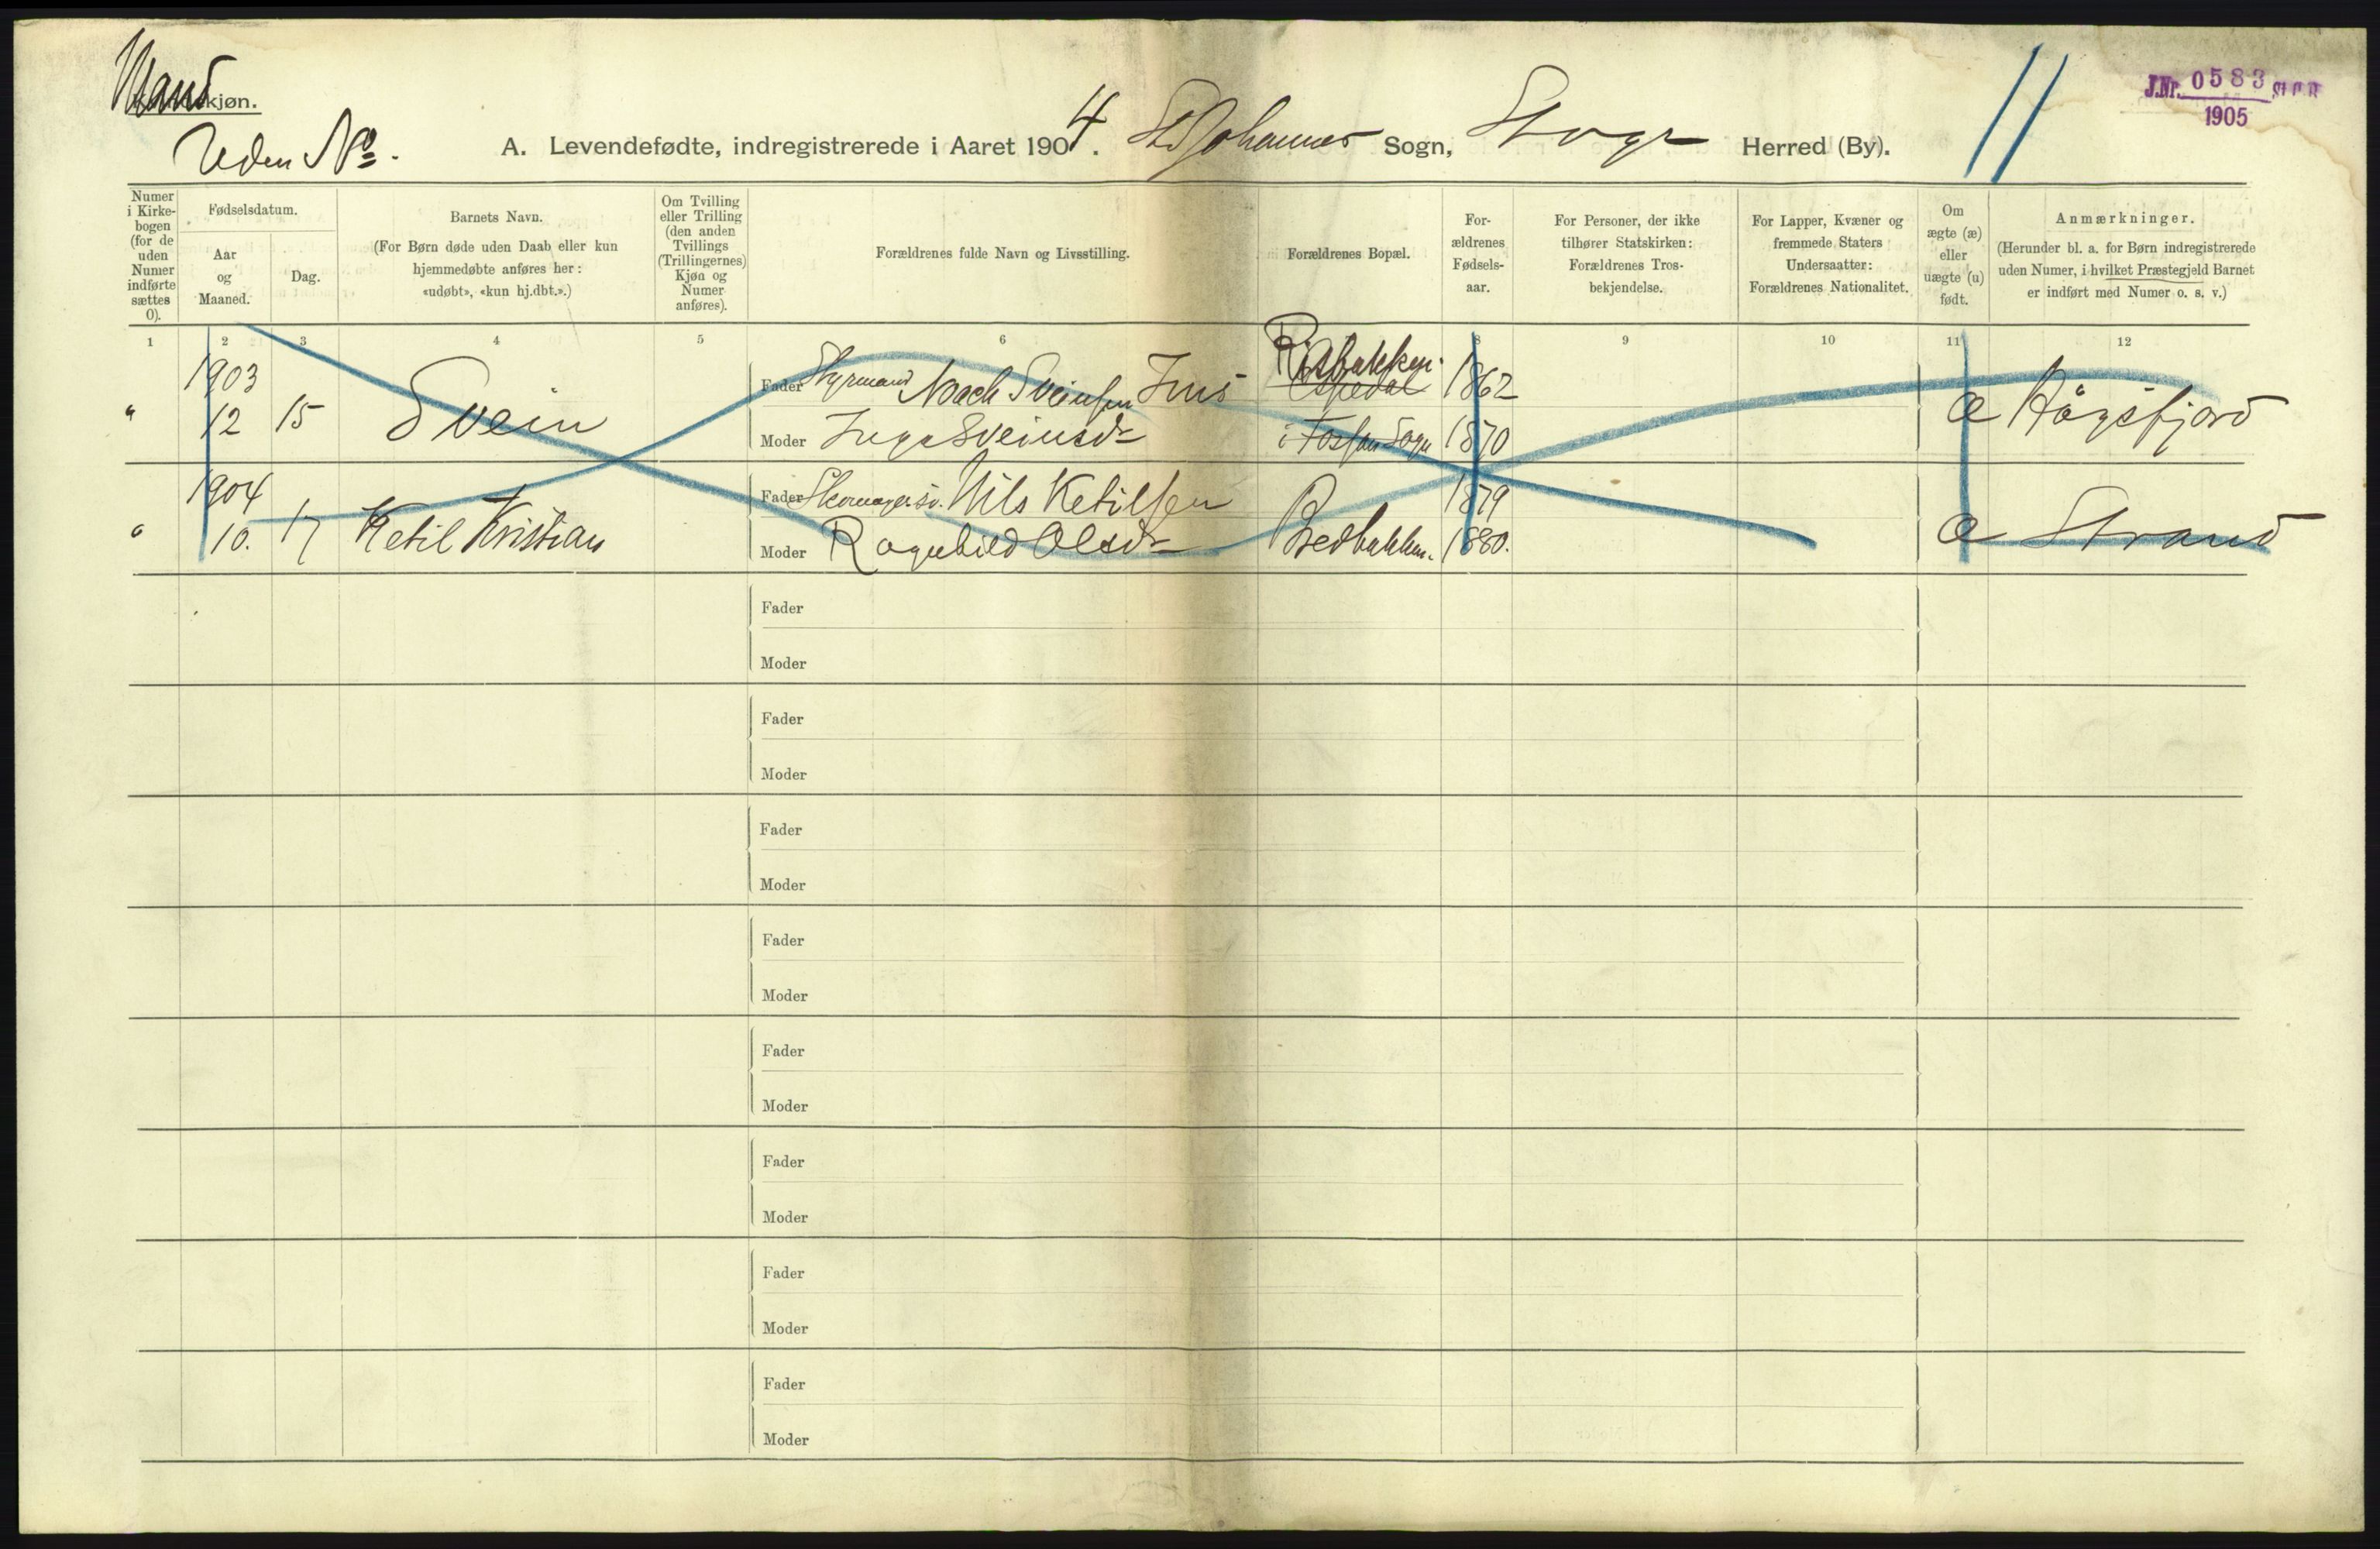 Mand kjøn.
Uden No.
A. Levendefødte, indregistrerede i Aaret 1904. St Johannes Sogn, Stvgr Herred (By).
11
J.Nr. 0583
1905
Numer i Kirkebogen (for de uden Numer indførte sættes 0).
Fødselsdatum.
Aar og Maaned.
Dag.
Barnets Navn.
(For Børn døde uden Daab eller kun hjemmedøbte anføres her: «udøbt», «kun hj.dbt.».)
Om Tvilling eller Trilling (den anden Tvillings (Trillingernes) Kjøn og Numer anføres).
Forældrenes fulde Navn og Livsstilling.
Forældrenes Bopæl.
Forældrenes Fødselsaar.
For Personer, der ikke tilhører Statskirken: Forældrenes Trosbekjendelse.
For Lapper, Kvæner og fremmede Staters Undersaatter: Forældrenes Nationalitet.
Om ægte (æ) eller uægte (u) født.
Anmærkninger.
(Herunder bl. a. for Børn indregistrerede uden Numer, i hvilket Præstegjeld Barnet er indført med Numer o. s. v.)
1 2 3 4 5 6 8 9 10 11 12
1903 Fader Styrmand Noach Sveinsen Risbakken. Espedal 1862
" 12 15 Svein Moder Inga Sveinsdr i Fossan Sogn 1870 æ Høgsfjord
1904 Fader Nils Ketilsen 1879
" 10. 17 Ketil Kristian Moder Ragnhild Olsdr Bedbakken. 1880. æ Strand
Fader
Moder
Fader
Moder
Fader
Moder
Fader
Moder
Fader
Moder
Fader
Moder
Fader
Moder
Fader
Moder